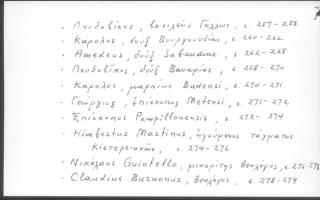 · Λουδοβίκος, βασιλεὺς Γάλλων, σ. 257-258
· Κάρολος, δοὺξ Βουργουνδίας, σ. 260-262
· Amedeus, δοὺξ Sabaudiae, σ. 262-268
· Λουδοβίκος, δοὺξ Βαυαρίας, σ. 268-270
· Κάρολος, μαρκίων Badensi, σ. 270-271
· Γεώργιος, ἐπίσκοπος Metensi, σ. 271-272
· Ἐπίσκοπος Pampillonensis, σ. 272-274
· Martinus, ἡγούμενος τάγματος
Κιστερσιανῶν, σ. 274-276
· Νικόλαος Guiotello, μινορίτης θεολόγος, σ. 276-278
· Claudius, θεολόγος, σ. 278-279